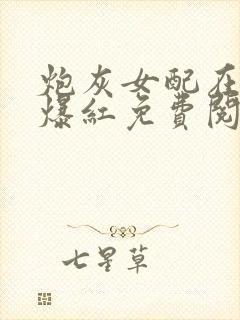 炮灰女配在
爆紅免費閱
七星草